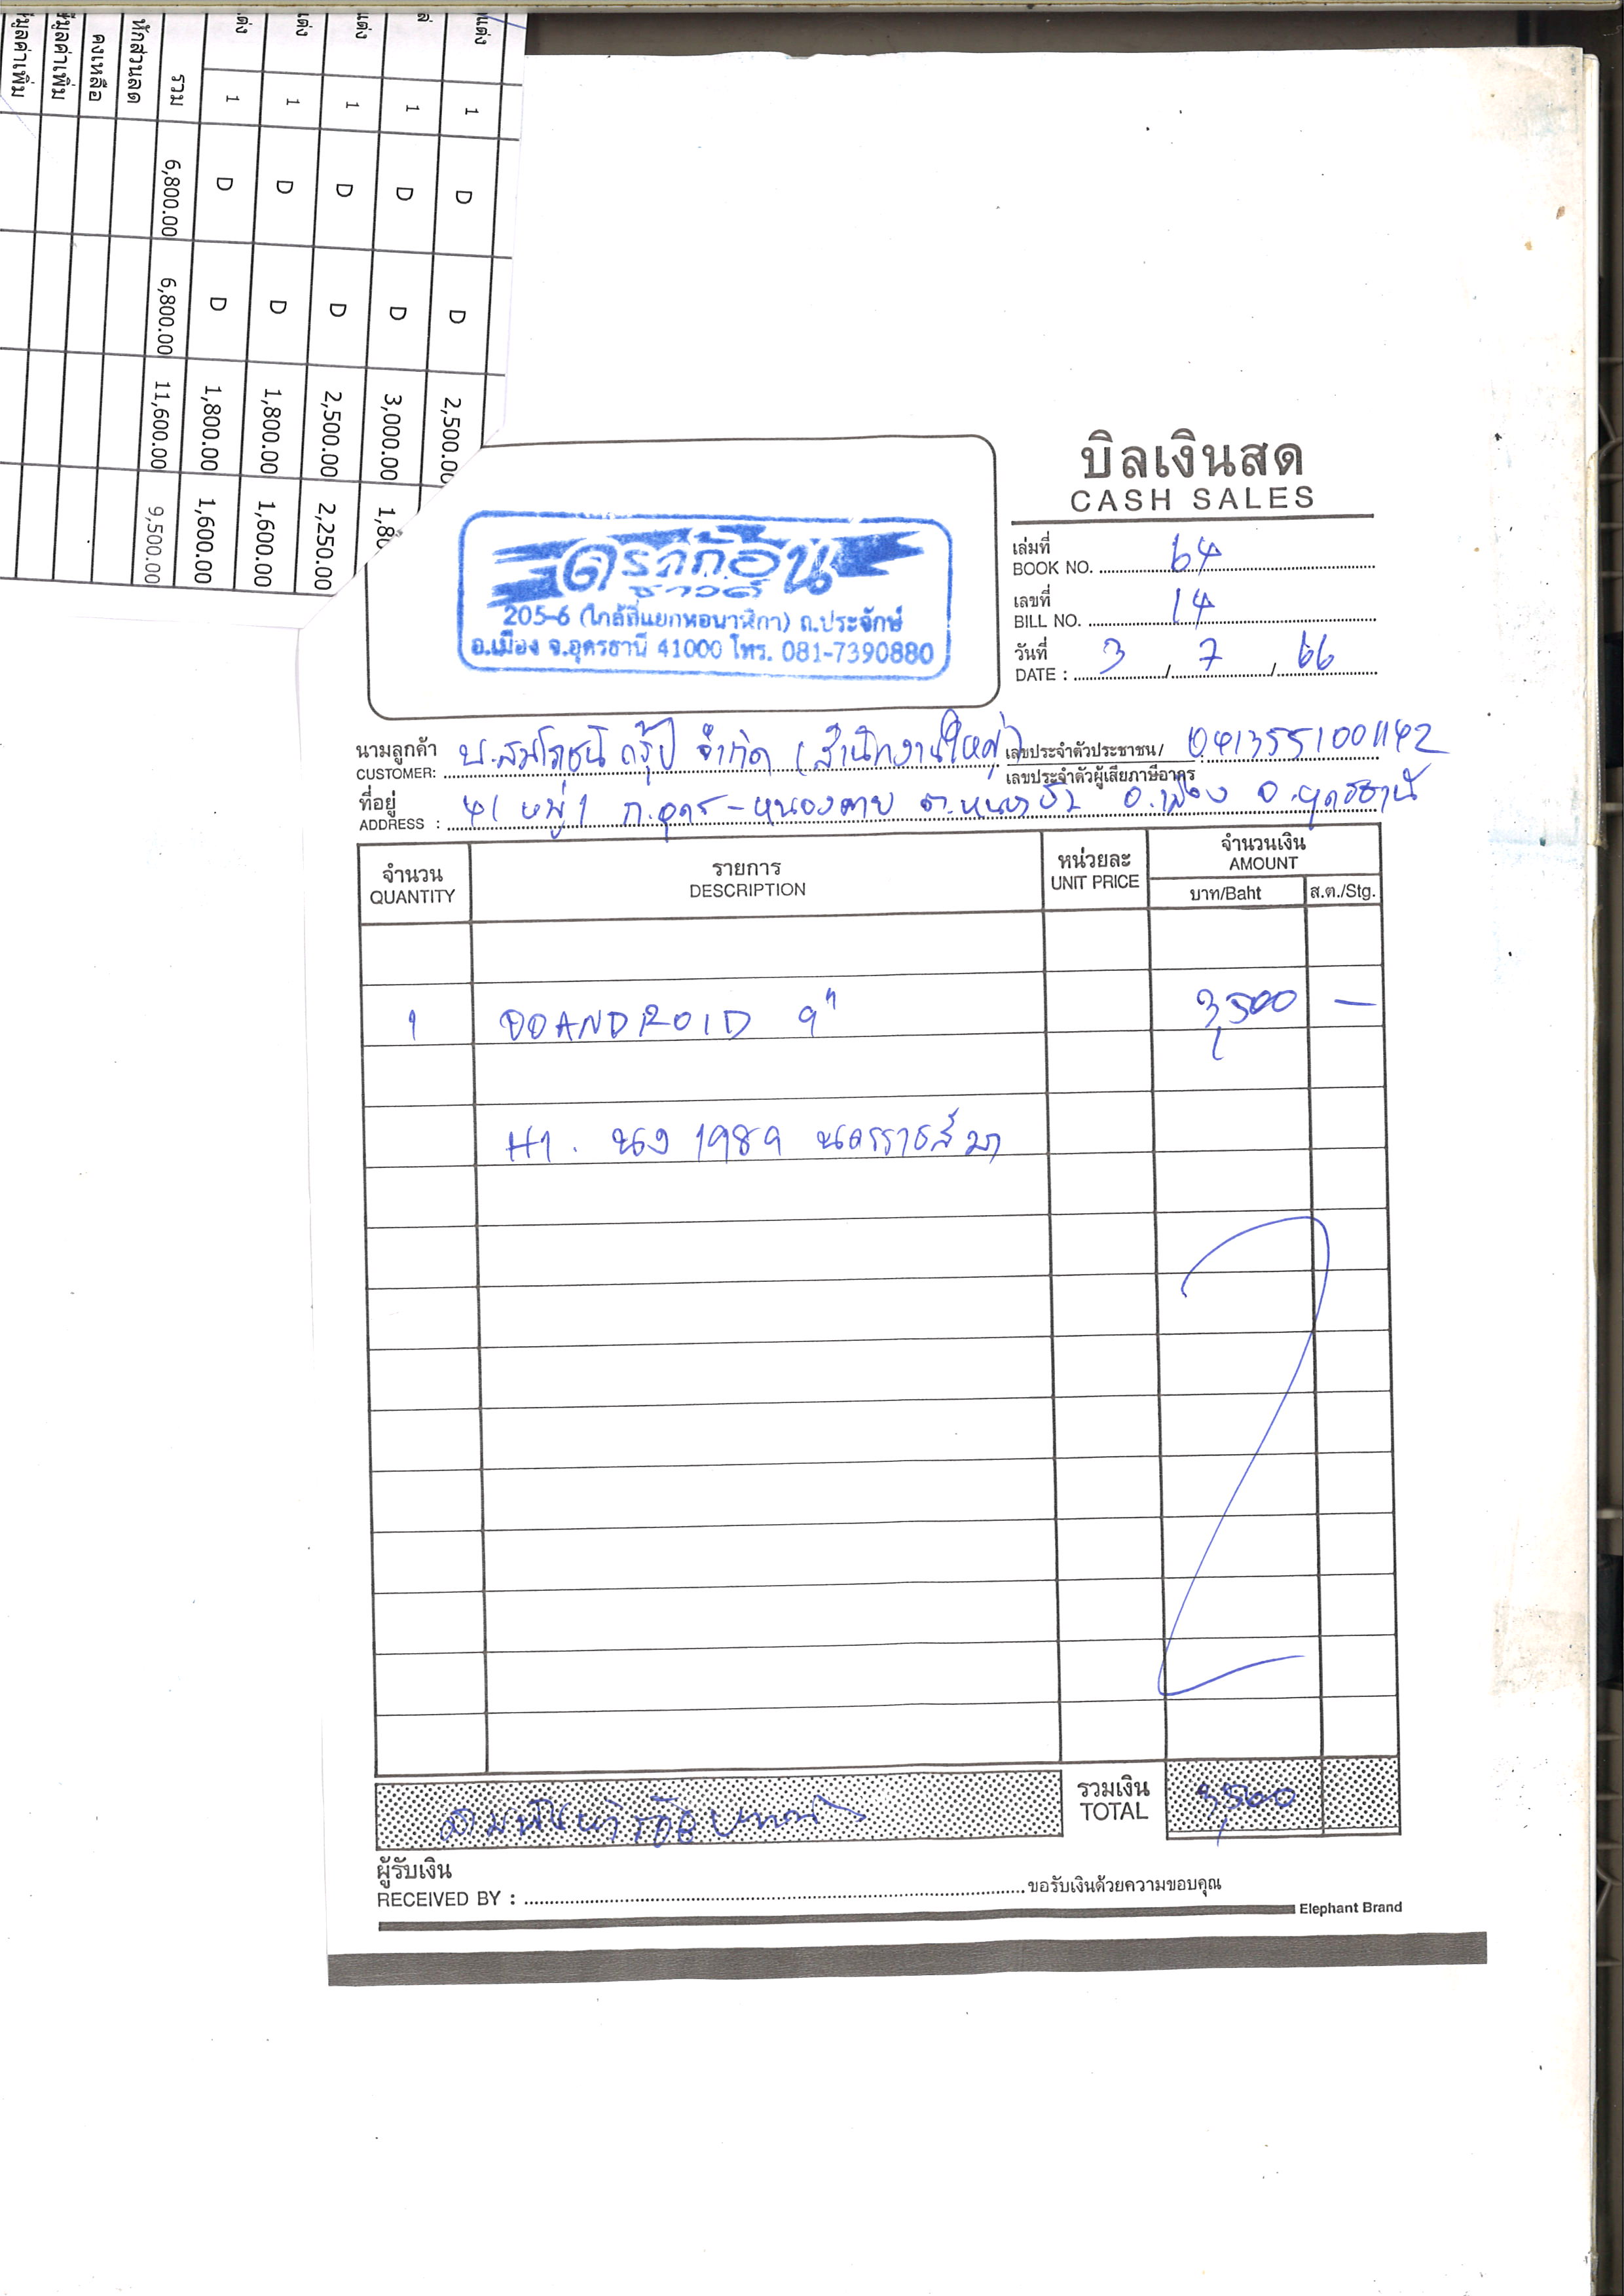 แต่ง 1 D D 2,500.00
1 D D 3,000.00
แต่ง 1 D D 2,500.00 2,250.00
แต่ง 1 D D 1,800.00 1,600.00
แต่ง 1 D D 1,800.00 1,600.00
รวม 6,800.00 6,800.00 11,600.00 9,500.00
หักส่วนลด
คงเหลือ
มูลค่าเพิ่ม
มูลค่าเพิ่ม
บิลเงินสด
CASH SALES
ดราก้อน
ซาวด์
205-6 (ใกล้สี่แยกหอนาฬิกา) ถ.ประจักษ์
อ.เมือง จ.อุดรธานี 41000 โทร. 081-7390880
เล่มที่
BOOK NO. 64
เลขที่
BILL NO. 14
วันที่
DATE : 3 / 7 / 66
นามลูกค้า
CUSTOMER: บ.สมโภชน์ กรุ๊ป จำกัด (สำนักงานใหญ่) เลขประจำตัวประชาชน/ 0413551001142
เลขประจำตัวผู้เสียภาษีอากร
ที่อยู่
ADDRESS : 41 หมู่ 1 ถ.อุดร-หนองคาย อ.เมือง จ.อุดรธานี
จำนวน รายการ หน่วยละ จำนวนเงิน
QUANTITY DESCRIPTION UNIT PRICE AMOUNT
บาท/Baht ส.ต./Stg.
1 จอANDROID 9" 3,500 —
H1. นง 1989 นครราชสีมา
สามพันห้าร้อยบาท รวมเงิน 3,500
TOTAL
ผู้รับเงิน
RECEIVED BY : ขอรับเงินด้วยความขอบคุณ
Elephant Brand